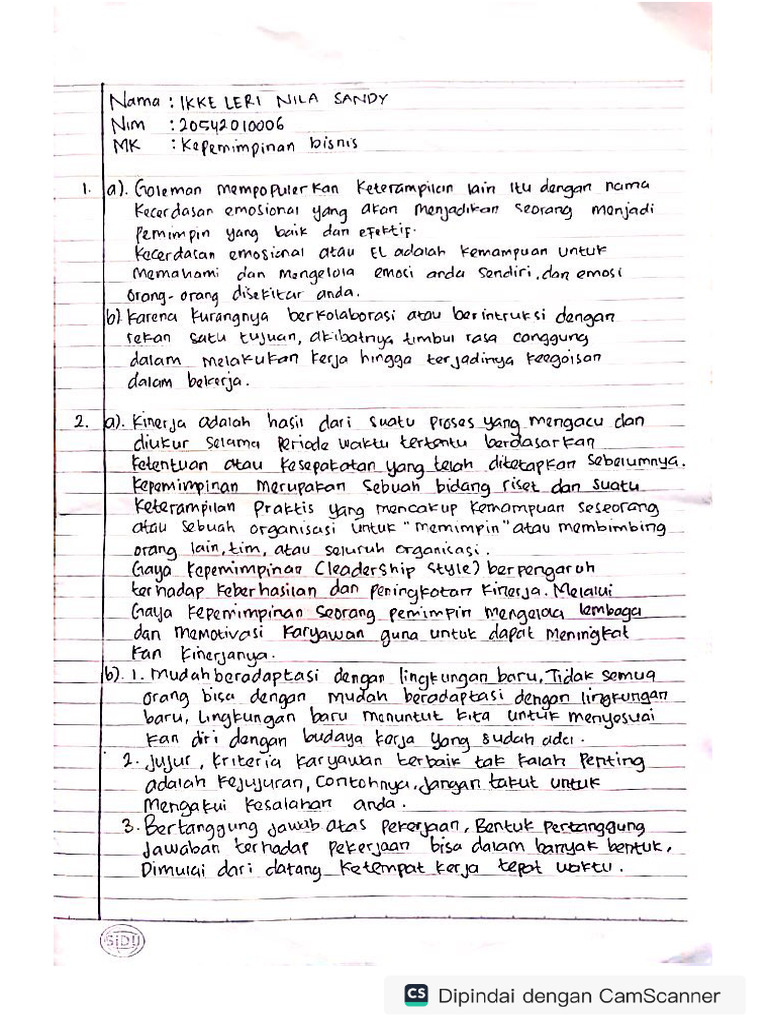 Nama : IKKE LERI NILA SANDY
Nim : 20542010006
MK : Kepemimpinan bisnis
1. a). Goleman mempopulerkan keterampilan lain itu dengan nama
kecerdasan emosional yang akan menjadikan seorang menjadi
pemimpin yang baik dan efektif.
kecerdasan emosional atau EL adalah kemampuan untuk
memahami dan mengelola emosi anda sendiri, dan emosi
orang-orang disekitar anda.
b). karena kurangnya berkolaborasi atau berintruksi dengan
rekan satu tujuan, akibatnya timbul rasa canggung
dalam melakukan kerja hingga terjadinya keegoisan
dalam bekerja.
2. a). Kinerja adalah hasil dari suatu proses yang mengacu dan
diukur selama periode waktu tertentu berdasarkan
ketentuan atau kesepakatan yang telah ditetapkan sebelumnya.
kepemimpinan merupakan sebuah bidang riset dan suatu
keterampilan praktis yang mencakup kemampuan seseorang
atau sebuah organisasi untuk "memimpin" atau membimbing
orang lain, tim, atau seluruh organisasi.
Gaya kepemimpinan (leadership style) berpengaruh
terhadap keberhasilan dan peningkatan kinerja. Melalui
Gaya kepemimpinan seorang pemimpin mengelola lembaga
dan memotivasi karyawan guna untuk dapat meningkat
kan kinerjanya.
b). 1. Mudah beradaptasi dengan lingkungan baru, Tidak semua
orang bisa dengan mudah beradaptasi dengan lingkungan
baru, lingkungan baru menuntut kita untuk menyesuai
kan diri dengan budaya kerja yang sudah ada.
2. Jujur, kriteria karyawan terbaik tak kalah penting
adalah kejujuran, Contohnya, jangan takut untuk
mengakui kesalahan anda.
3. Bertanggung jawab atas pekerjaan, Bentuk pertanggung
jawaban terhadap pekerjaan bisa dalam banyak bentuk,
Dimulai dari datang ketempat kerja tepat waktu.
SIDU
CS Dipindai dengan CamScanner